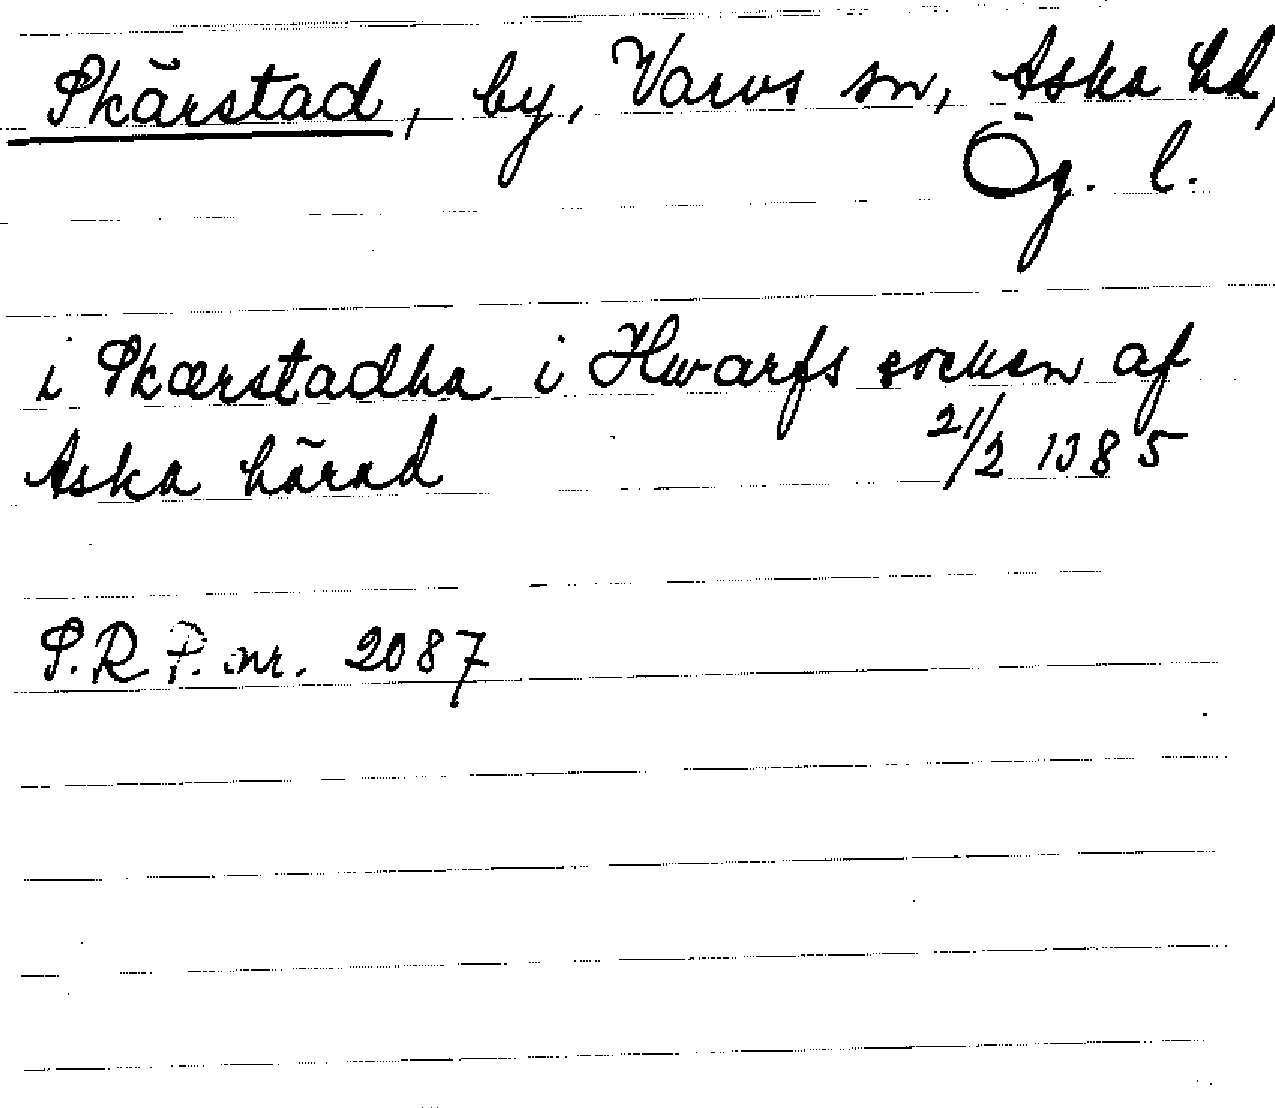 Skärstad, by, Varvs sn, Aska hd,
Ög. l.
i Skærstadha i Hwarfs socken af
Aska härad 21/2 1385
S.R.P. nr. 2087